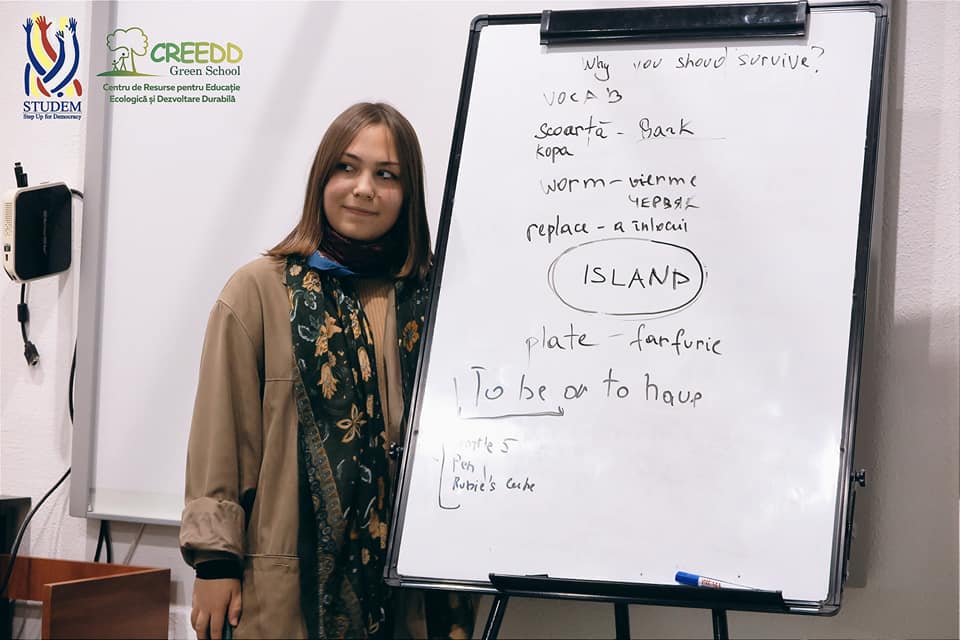 STUDEM
Step Up for Democracy
CREEDD
Green School
Centru de Resurse pentru Educație
Ecologică și Dezvoltare Durabilă
Why you shoud survive?
VOCAB
scoarță - Bark
кора
worm - vierme
ЧЕРВЯК
replace - a înlocui
ISLAND
plate - farfurie
To be or to have
5
Pen
Rubic's Cube